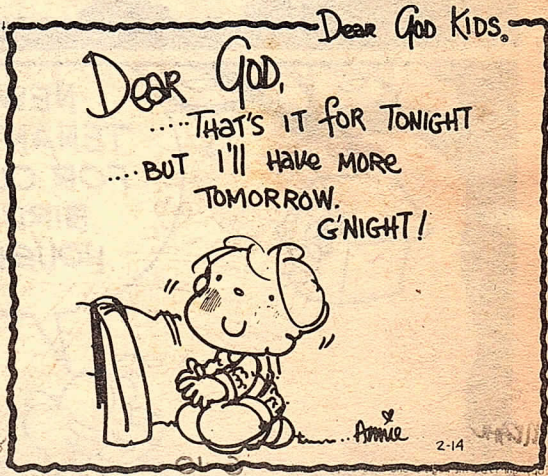 Dear God Kids®
Dear God,
.....That's it for tonight
....but I'll have more
tomorrow.
G'night!
...Annie
2-14